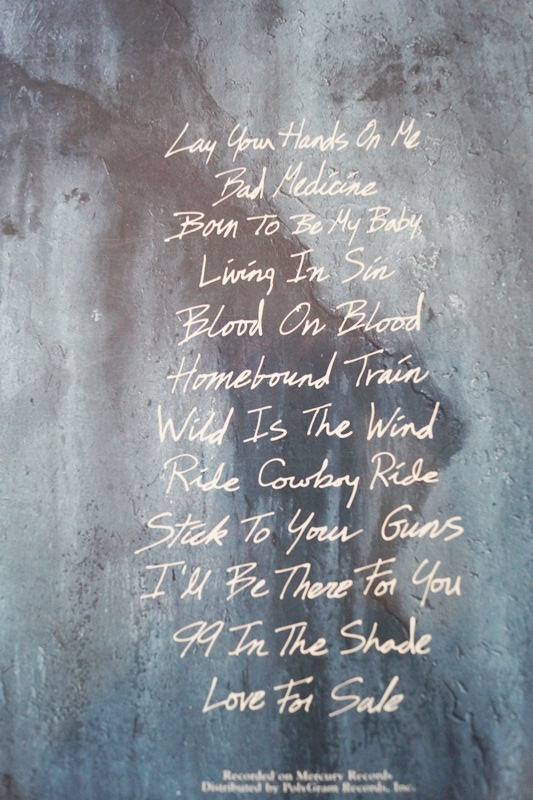 Lay Your Hands On Me
Bad Medicine
Born To Be My Baby
Living In Sin
Blood On Blood
Homebound Train
Wild Is The Wind
Ride Cowboy Ride
Stick To Your Guns
I'll Be There For You
99 In The Shade
Love For Sale
Recorded on Mercury Records
Distributed by PolyGram Records, Inc.